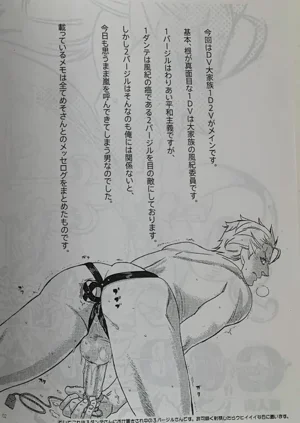 今回はDV大家族1D2Vがメインです。
基本、根が真面目な1DVは大家族の風紀委員です。
1バージルはわりあい平和主義ですが、
1ダンテは風紀の癌である2バージルを目の敵にしております。
しかし2バージルはそんなのも俺には関係ないと、
今日も思うまま嵐を呼んできてしまう男なのでした。
載っているメモは全てめそさんとのメッセログをまとめたものです。